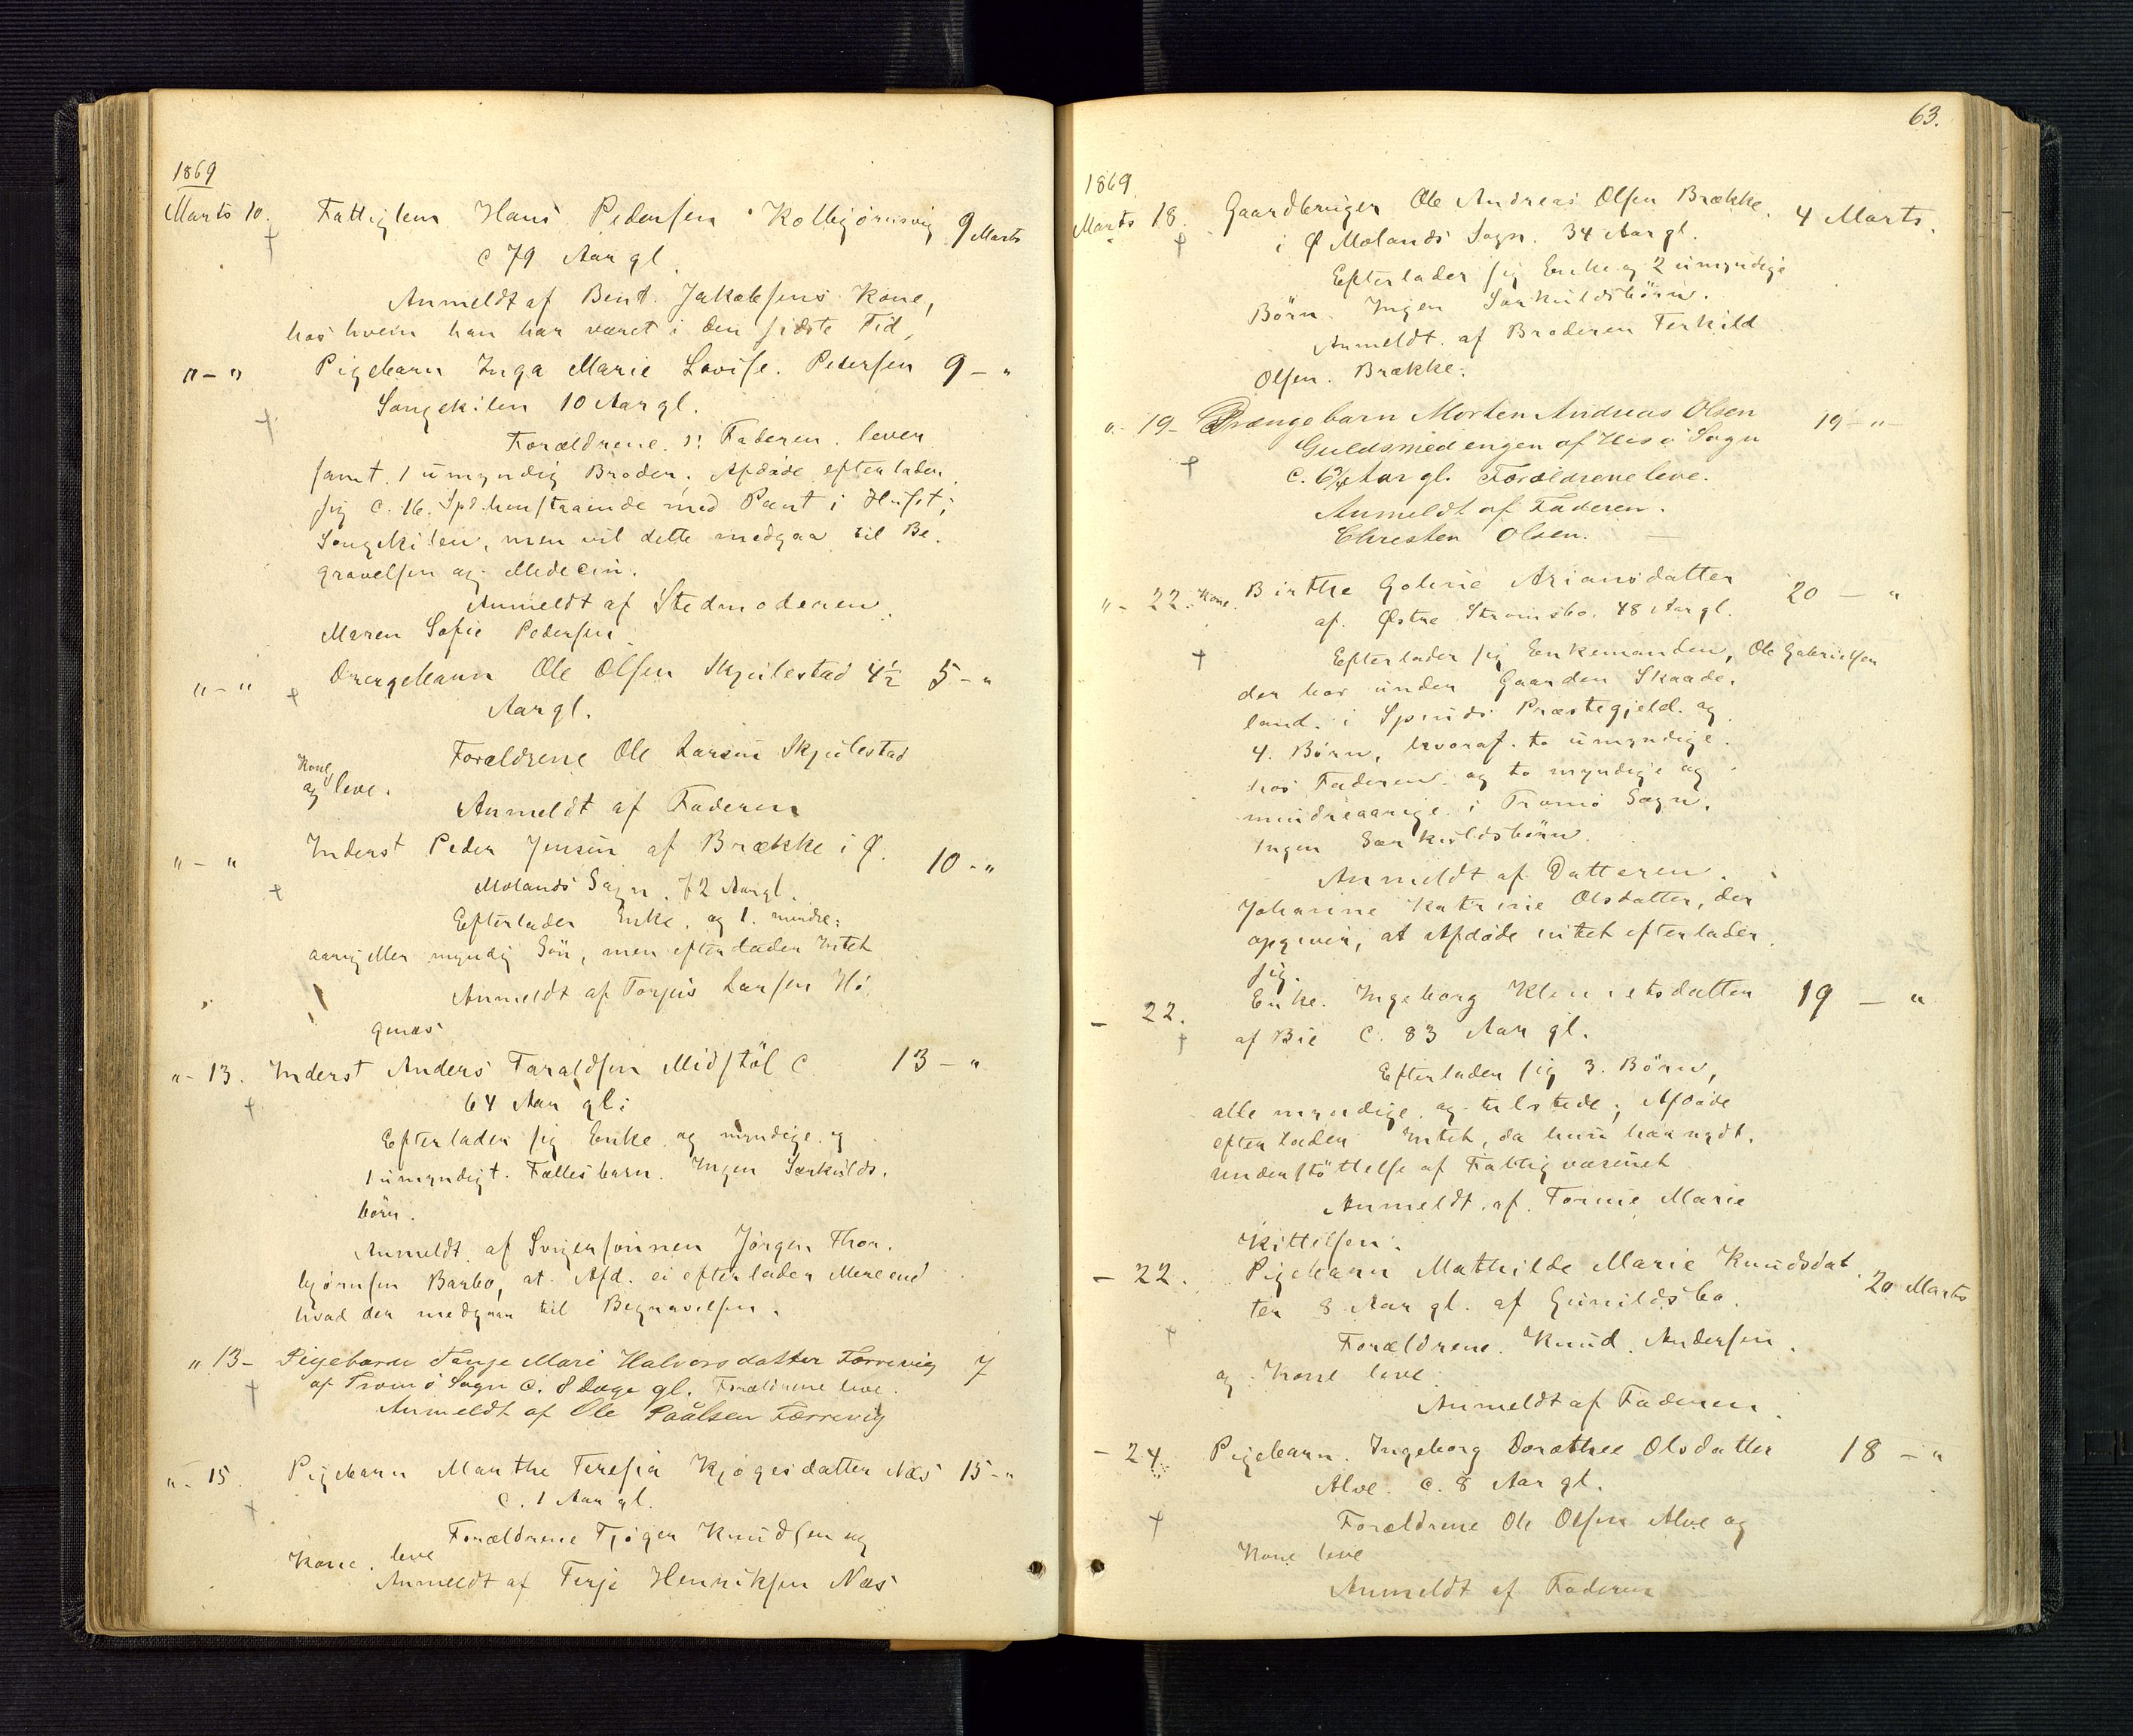 1869
Marts 10. Fattiglem Hans Pedersen Kolbjørnsvig 9 Marts
c 79 Aar gl.
Anmeldt af Bent Jakobsens Kone,
hos hvem han har været i den sidste Tid,
"-" Pigebarn Inga Marie Lovise Petersen 9 - "
Songekilen 10 Aar gl.
Forældrene s: Faderen lever
samt 1 umyndig Broder. Afdøde efterlader
sig c. 16 Spd. henstaaende med Pant i Huset,
Songekilen, men vil dette medgaa til Be-
gravelsen og Medecin.
Anmeldt af Stedmoderen
Maren Sofie Pedersen
"-" Drengebarn Ole Olsen Skjulestad 4½ 5 - "
Aar gl.
Forældrene Ole Larsen Skjulestad
og Kone leve.
Anmeldt af Faderen
"-" Inderst Peder Jensen af Brække i Ø.
Molands Sogn. 72 Aar gl. 10 - "
Efterlader Enke og 1 mindre-
aarig eller myndig Søn, men efterlader Intet
Anmeldt af Torjus Larsen Hø
genæs
"- 13. Inderst Anders Taraldsen Midstøl c. 13 - "
64 Aar gl:
Efterlader sig Enke og myndige og
1 umyndigt Fællesbarn. Ingen Særkulds-
børn.
Anmeldt af Svigersønnen Jørgen Thor-
bjørnsen Barbo, at Afd. ei efterlader Mere end
hvad der medgaar til Begravelsen.
" 13 - Pigebarn Tanje Mari Halvorsdatter Færrevig 7
af Tromø Sogn c. 8 Dage gl. Forældrene leve.
Anmeldt af Ole Paalsen Færrevig
"- 15 Pigebarn Marthe Teresia Kjøgesdatter Næs 15 - "
c. 1 Aar gl.
Forældrene Tjøger Knudsen og
Kone leve
Anmeldt af Terje Henriksen Næs
63.
1869
Marts 18. Gaardbruger Ole Andreas Olsen Brække 4 Marts.
i Ø Molands Sogn. 34 Aar gl.
Efterlader sig Enke og 2 umyndige
Børn. Ingen Særkuldsbørn.
Anmeldt af Broderen Terkild
Olsen Brække.
"- 19 - Drengebarn Morten Andreas Olsen 19 - " -
Guldsmedengen af Hisø Sogn
c. 6/4 Aar gl. Forældrene leve.
Anmeldt af Faderen.
Christen Olsen. —
"- 22. Kone Birthe Goline Ariansdatter 20 — "
af Østre Strømsbo. 48 Aar gl.
Efterlader sig Enkemanden, Ole Gabrielsen
der bor under Gaarden Skaade-
land i Spinds Præstegjeld og
4 Børn, hvoraf to umyndige
hos Faderen og to myndige og
mindreaarige i Tromø Sogn.
Ingen Særkuldsbørn.
Anmeldt af Datteren
Johanne Katrine Olsdatter, der
opgiver, at Afdøde intet efterlader
sig.
- 22. Enke Ingeborg Klemetsdatter 19 — "
af Bie c. 83 Aar gl.
Efterlader sig 3 Børn,
alle myndige og tilstede; Afdøde
efterlader Intet, da hun har nydt
understøttelse af Fattigvæsenet
Anmeldt af Tomine Marie
Kittelsen.
- 22. Pigebarn Mathilde Marie Knudsdat- 20 Marts
ter 8 Aar gl. af Gunildsbo.
Forældrene Knud Andersen
og Kone leve
Anmeldt af Faderen
- 24. Pigebarn Ingeborg Dorothee Olsdatter 18 - "
Alve. c. 8 Aar gl.
Forældrene Ole Olsen Alve og
Kone leve
Anmeldt af Faderen